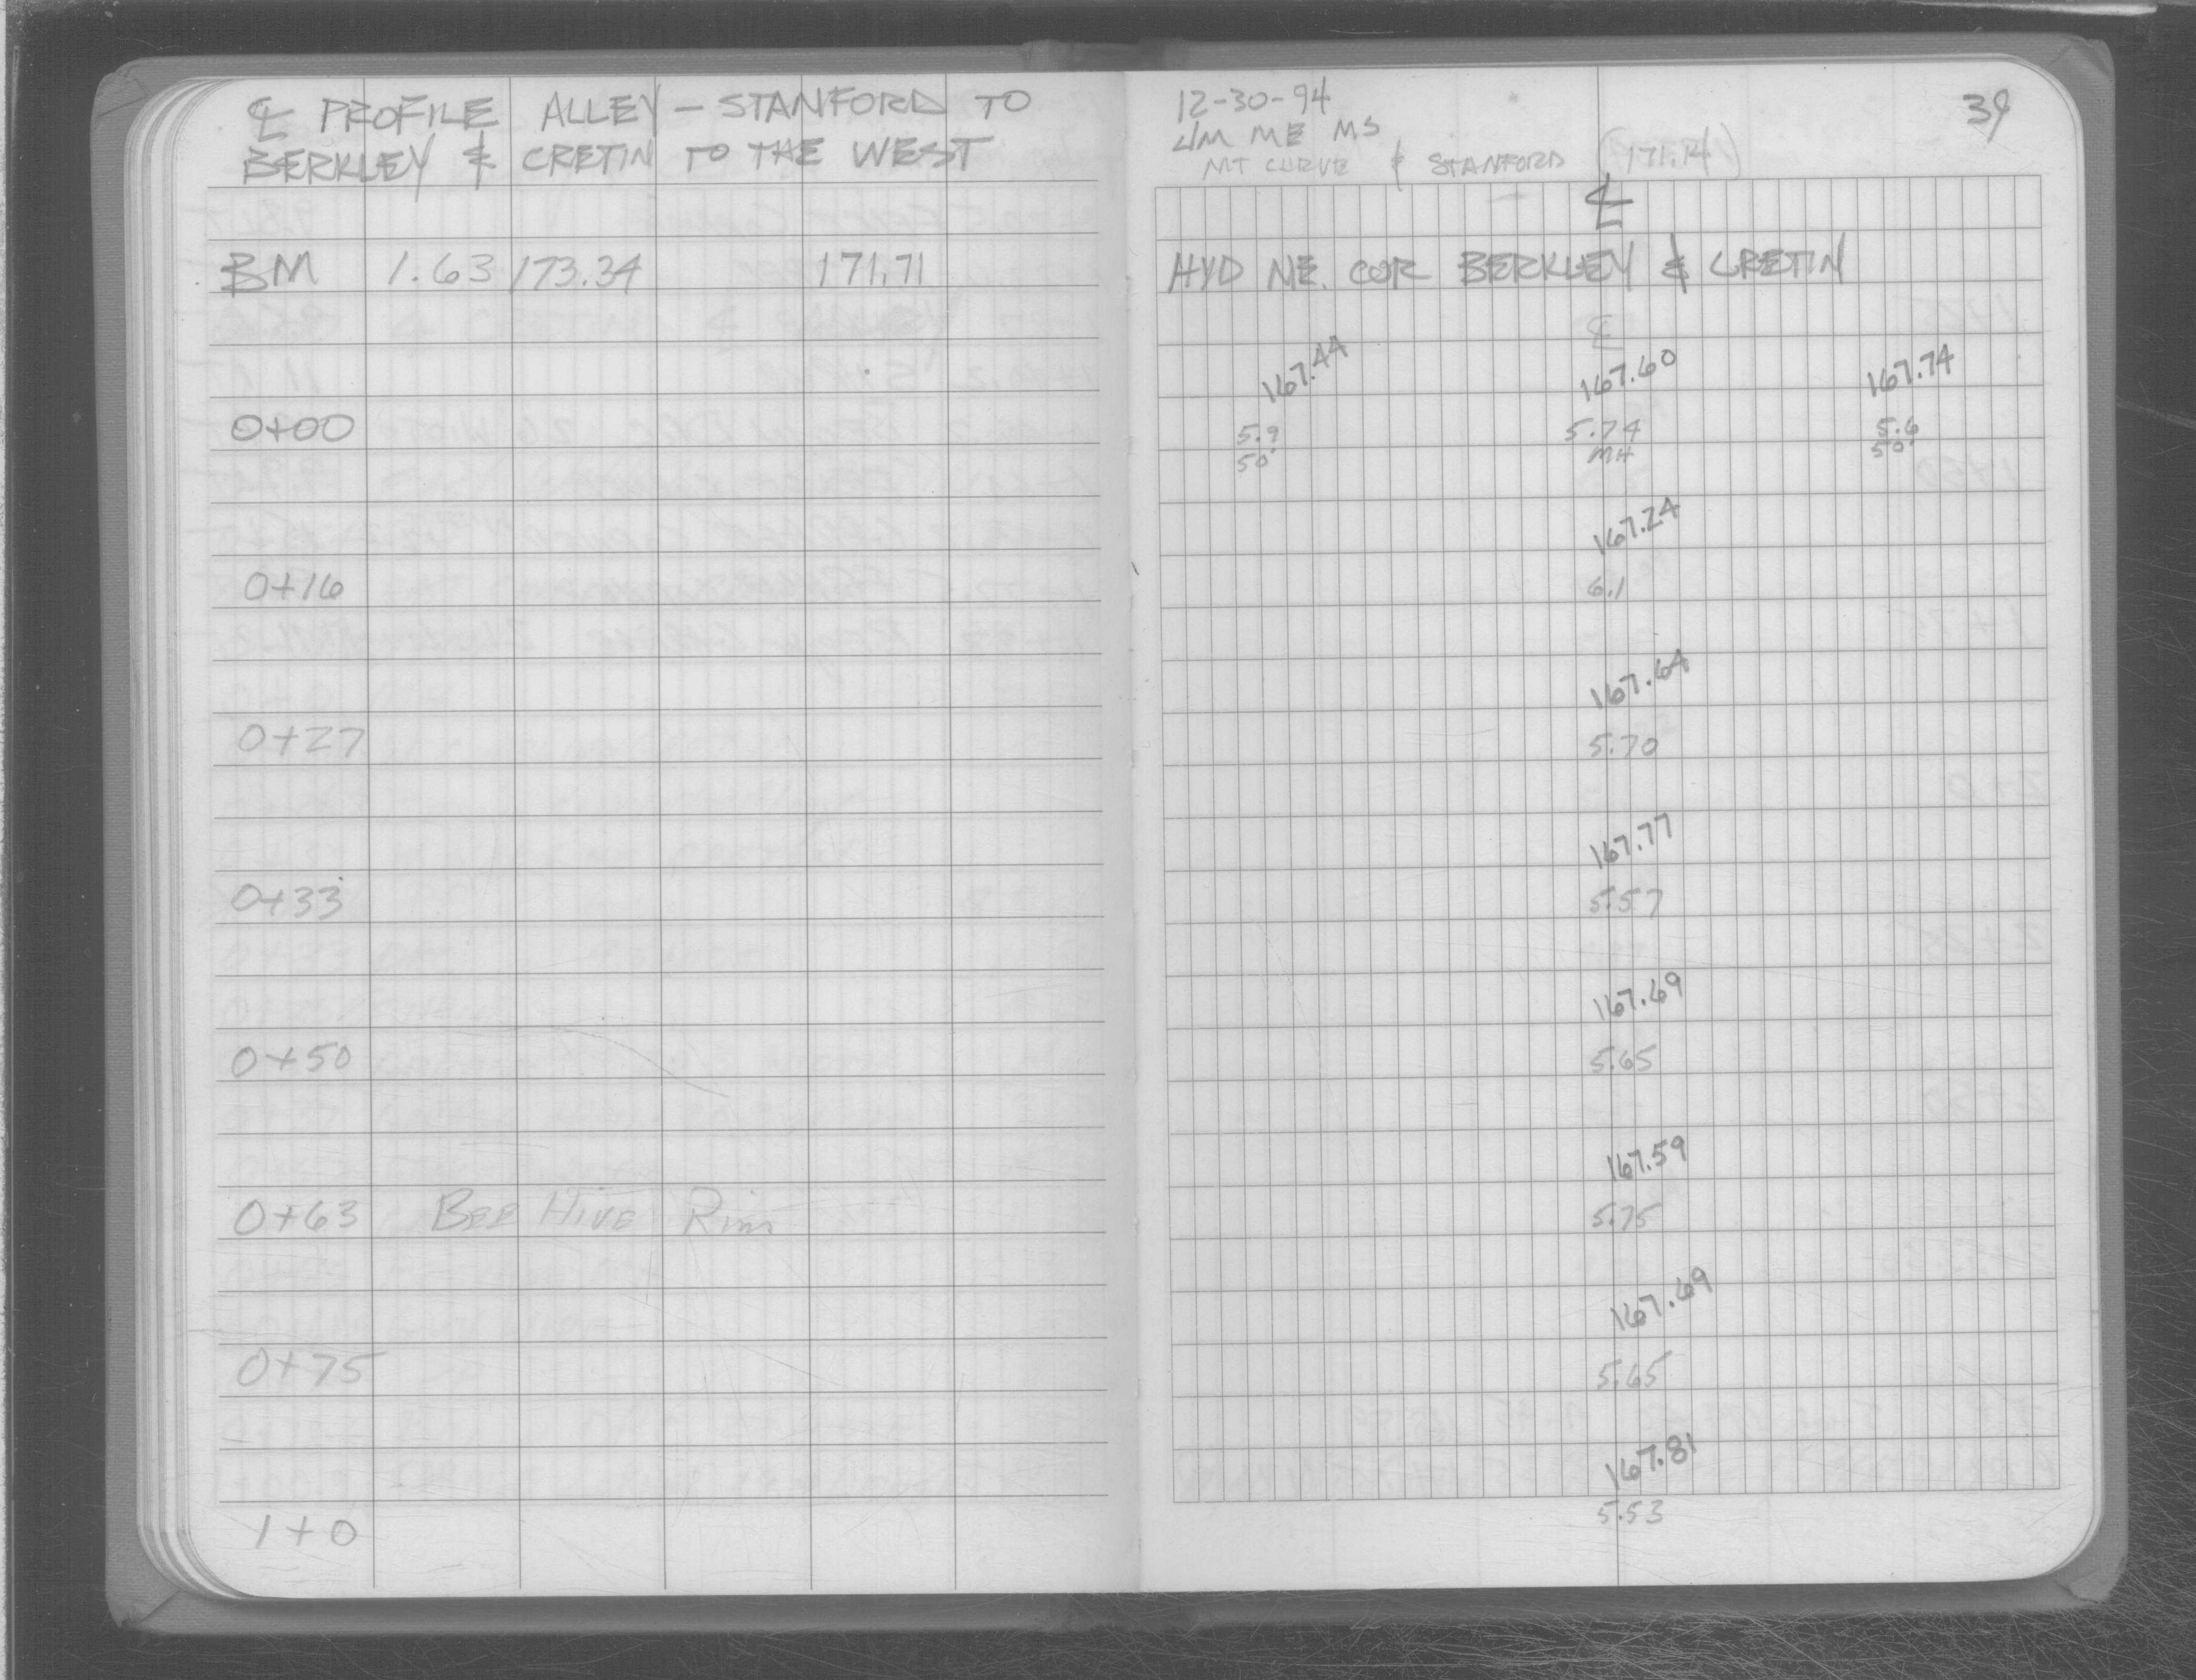 ℄ PROFILE ALLEY - STANFORD TO
BERKLEY & CRETIN TO THE WEST
BM 1.63 173.34 171.71
0+00
0+16
0+27
0+33
0+50
0+63 BEE HIVE RIM
0+75
1+0
12-30-94
JM ME MS
MT CURVE & STANFORD (171.14)
39
℄
HYD NE. COR BERKLEY & CRETIN
℄
167.44 167.60 167.74
5.9 5.74 5.6
50' MH 50'
167.24
6.1
167.64
5.70
167.77
5.57
167.69
5.65
167.59
5.75
167.69
5.65
167.81
5.53